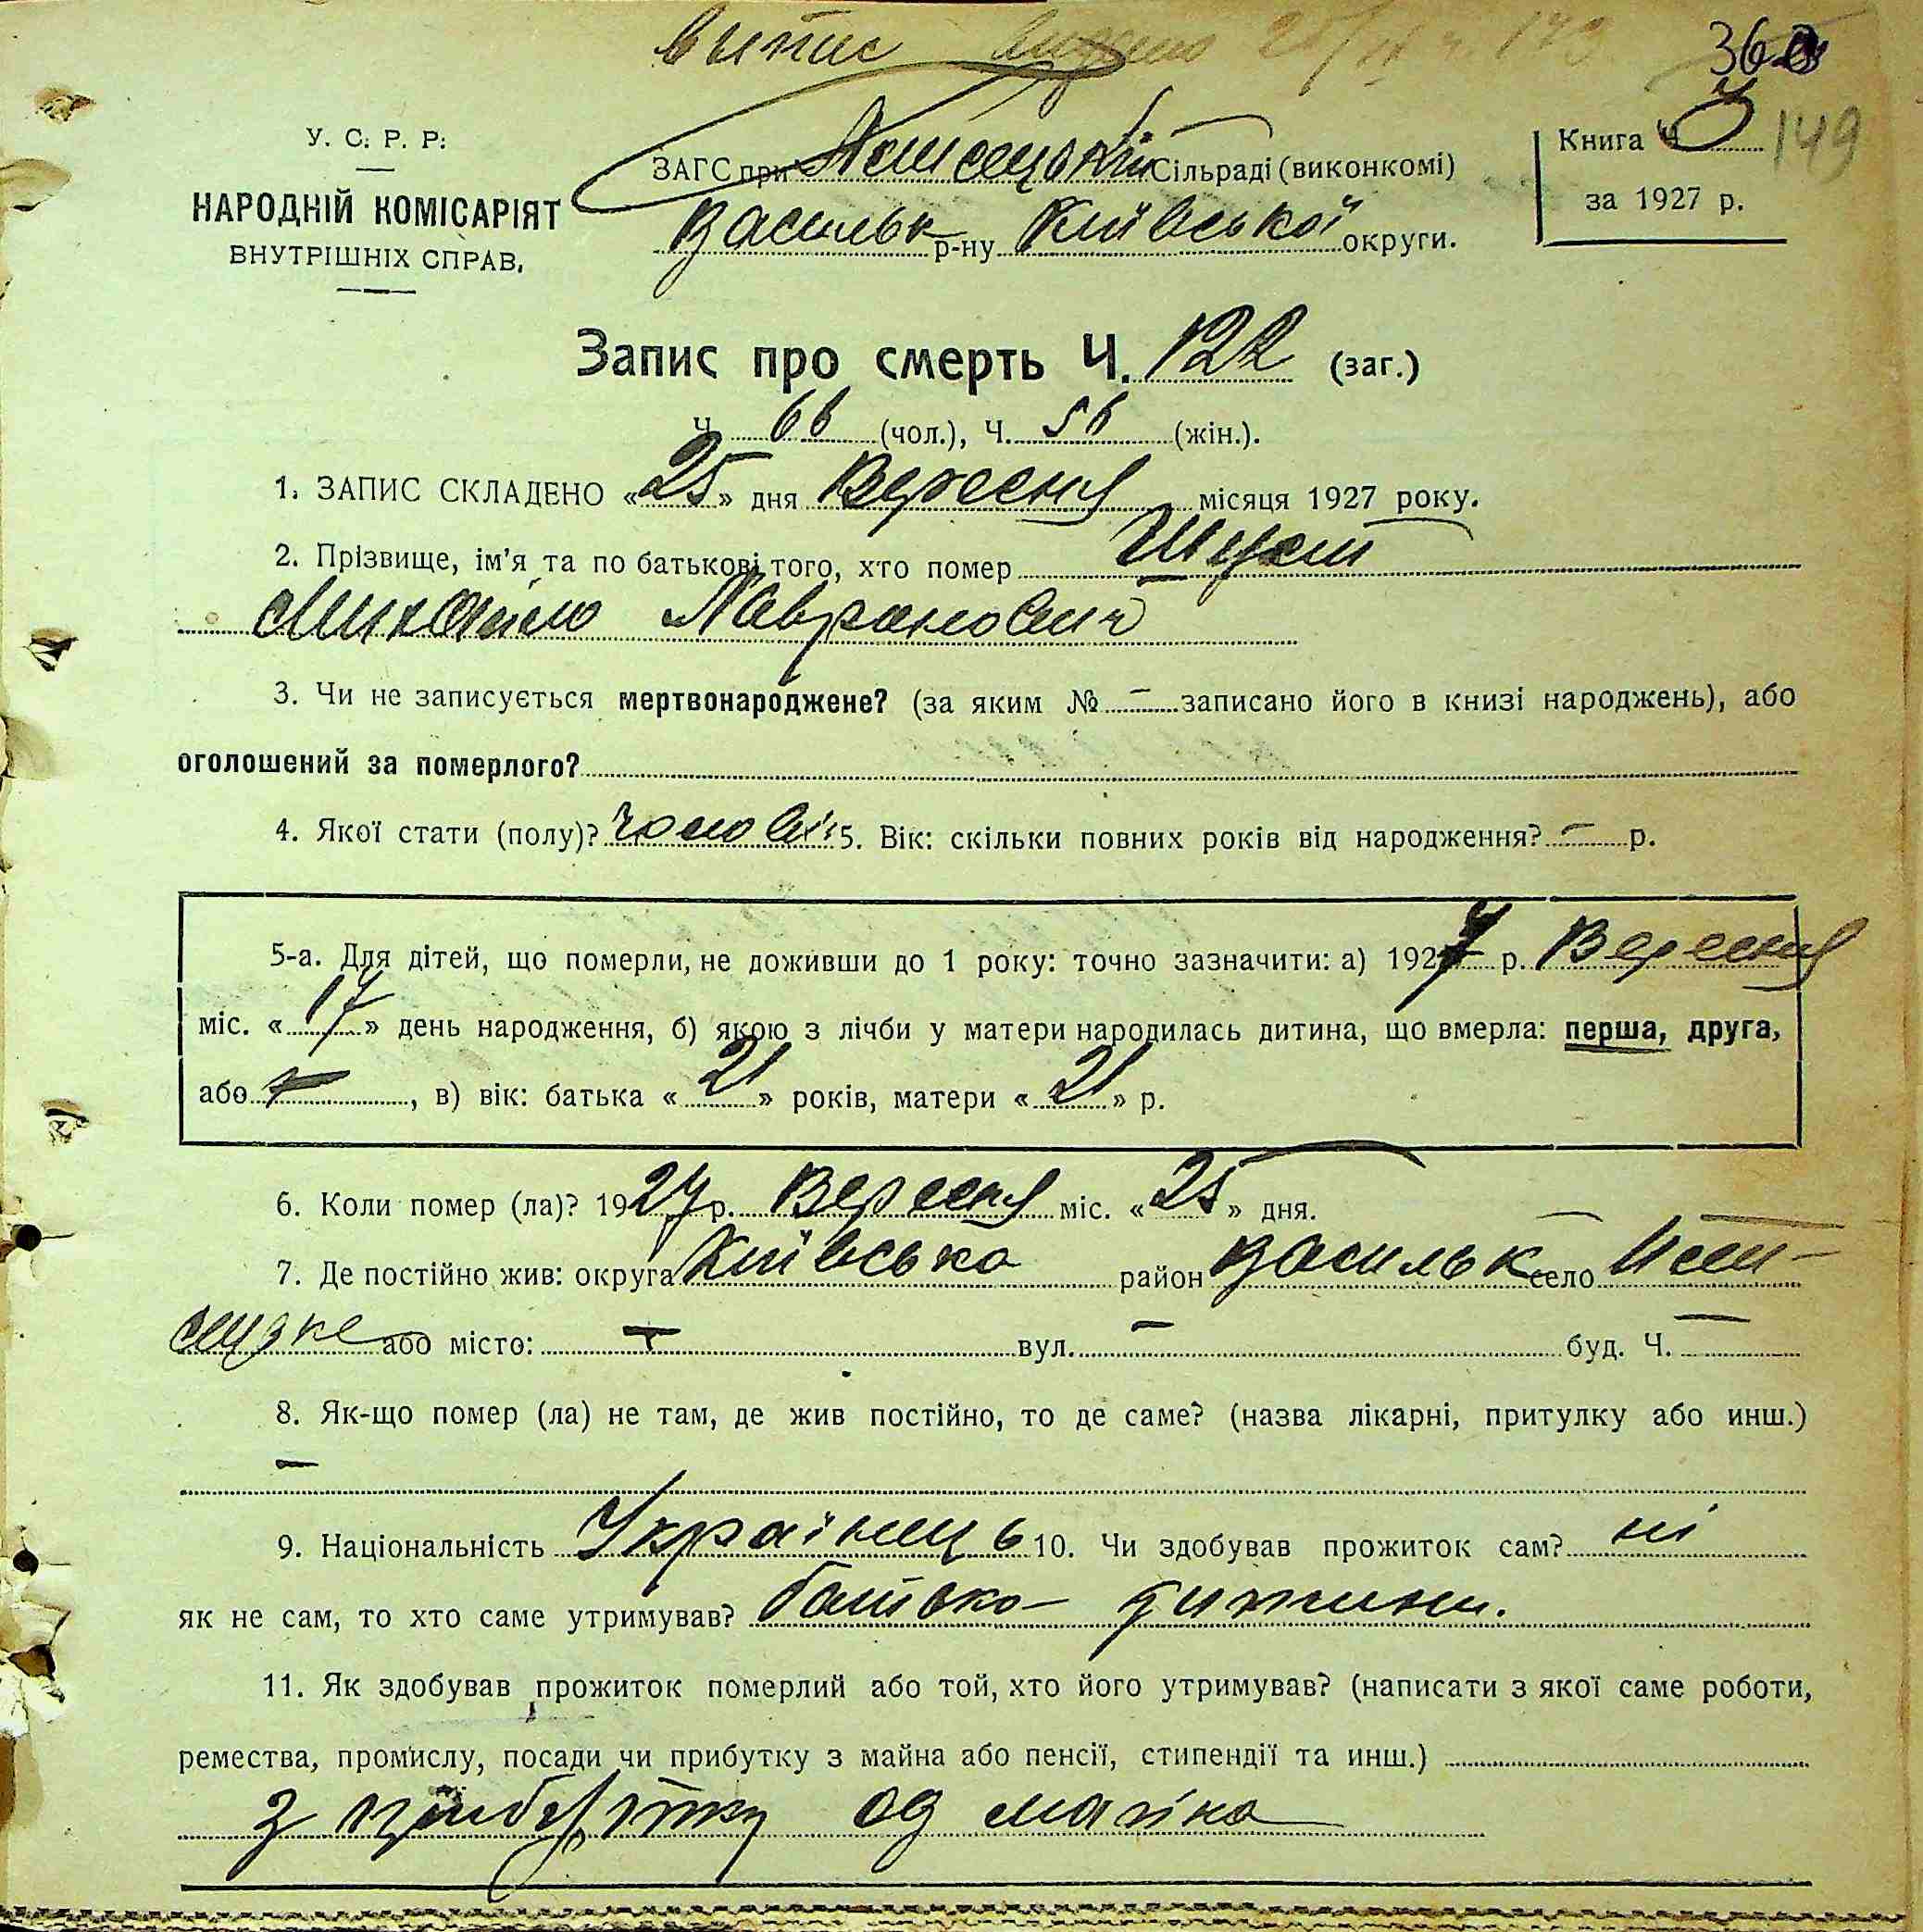 выпис
36
149
У. С. Р. Р.
НАРОДНІЙ КОМІСАРІЯТ
ВНУТРІШНІХ СПРАВ.
ЗАГС при Сільраді (виконкомі)
Васильк р-ну Київської округи.
Книга Ч 3
за 1927 р.
Запис про смерть Ч. 122 (заг.)
Ч. 66 (чол.), Ч. 56 (жін.).
1. ЗАПИС СКЛАДЕНО «25» дня Вересня місяця 1927 року.
2. Прізвище, ім'я та по батькові того, хто помер Шуст
Михайло
3. Чи не записується мертвонароджене? (за яким № – записано його в книзі народжень), або
оголошений за померлого?
4. Якої стати (полу)? чоловіч 5. Вік: скільки повних років від народження? – р.
5-а. Для дітей, що померли, не доживши до 1 року: точно зазначити: а) 1927 р. Вересня
міс. «17» день народження, б) якою з лічби у матери народилась дитина, що вмерла: перша, друга,
або –, в) вік: батька «21» років, матери «21» р.
6. Коли помер (ла)? 1927 р. Вересня міс. «25» дня.
7. Де постійно жив: округа Київська район Васильк село
або місто: – вул. – буд. Ч. –
8. Як-що помер (ла) не там, де жив постійно, то де саме? (назва лікарні, притулку або инш.)
–
9. Національність Українець 10. Чи здобував прожиток сам? ні
як не сам, то хто саме утримував? батько – дитини.
11. Як здобував прожиток померлий або той, хто його утримував? (написати з якої саме роботи,
ремества, промислу, посади чи прибутку з майна або пенсії, стипендії та инш.)
з прибутку од майна